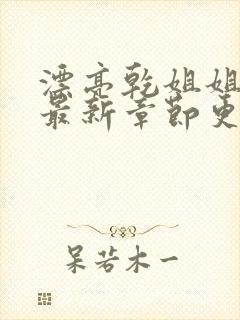 漂亮乾姐姐
最新章節更
呆若木一